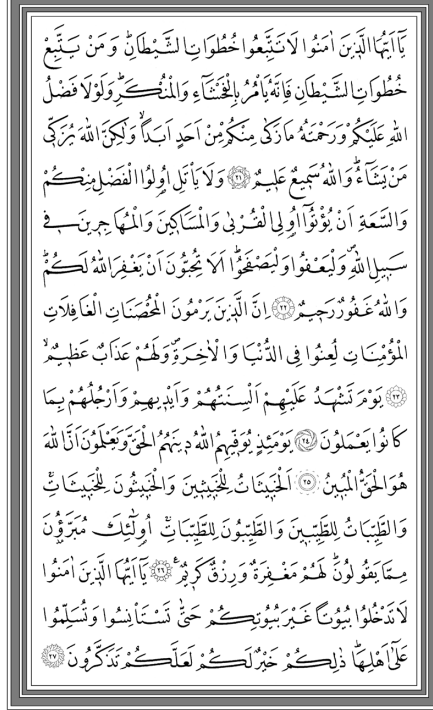 يَٓا اَيُّهَا الَّذٖينَ اٰمَنُوا لَا تَتَّبِعُوا خُطُوَاتِ الشَّيْطَانِؕ وَمَنْ يَتَّبِعْ
خُطُوَاتِ الشَّيْطَانِ فَاِنَّهُ يَأْمُرُ بِالْفَحْشَٓاءِ وَالْمُنْكَرِؕ وَلَوْلَا فَضْلُ
اللّٰهِ عَلَيْكُمْ وَرَحْمَتُهُ مَا زَكٰى مِنْكُمْ مِنْ اَحَدٍ اَبَدًاۙ وَلٰكِنَّ اللّٰهَ يُزَكّٖى
مَنْ يَشَٓاءُؕ وَاللّٰهُ سَمٖيعٌ عَلٖيمٌ ﴿٢١﴾ وَلَا يَأْتَلِ اُو۬لُوا الْفَضْلِ مِنْكُمْ
وَالسَّعَةِ اَنْ يُؤْتُٓوا اُو۬لِى الْقُرْبٰى وَالْمَسَاكٖينَ وَالْمُهَاجِرٖينَ فٖى
سَبٖيلِ اللّٰهِۖ وَلْيَعْفُوا وَلْيَصْفَحُواؕ اَلَا تُحِبُّونَ اَنْ يَغْفِرَ اللّٰهُ لَكُمْؕ
وَاللّٰهُ غَفُورٌ رَحٖيمٌ ﴿٢٢﴾ اِنَّ الَّذٖينَ يَرْمُونَ الْمُحْصَنَاتِ الْغَافِلَاتِ
الْمُؤْمِنَاتِ لُعِنُوا فِى الدُّنْيَا وَالْاٰخِرَةِۖ وَلَهُمْ عَذَابٌ عَظٖيمٌۙ
﴿٢٣﴾ يَوْمَ تَشْهَدُ عَلَيْهِمْ اَلْسِنَتُهُمْ وَاَيْدٖيهِمْ وَاَرْجُلُهُمْ بِمَا
كَانُوا يَعْمَلُونَ ﴿٢٤﴾ يَوْمَئِذٍ يُوَفّٖيهِمُ اللّٰهُ دٖينَهُمُ الْحَقَّ وَيَعْلَمُونَ اَنَّ اللّٰهَ
هُوَ الْحَقُّ الْمُبٖينُ ﴿٢٥﴾ اَلْخَبٖيثَاتُ لِلْخَبٖيثٖينَ وَالْخَبٖيثُونَ لِلْخَبٖيثَاتِۚ
وَالطَّيِّبَاتُ لِلطَّيِّبٖينَ وَالطَّيِّبُونَ لِلطَّيِّبَاتِۚ اُو۬لٰٓئِكَ مُبَرَّؤُ۫نَ
مِمَّا يَقُولُونَؕ لَهُمْ مَغْفِرَةٌ وَرِزْقٌ كَرٖيمٌ ﴿٢٦﴾ يَٓا اَيُّهَا الَّذٖينَ اٰمَنُوا
لَا تَدْخُلُوا بُيُوتًا غَيْرَ بُيُوتِكُمْ حَتّٰى تَسْتَأْنِسُوا وَتُسَلِّمُوا
عَلٰٓى اَهْلِهَاؕ ذٰلِكُمْ خَيْرٌ لَكُمْ لَعَلَّكُمْ تَذَكَّرُونَ ﴿٢٧﴾